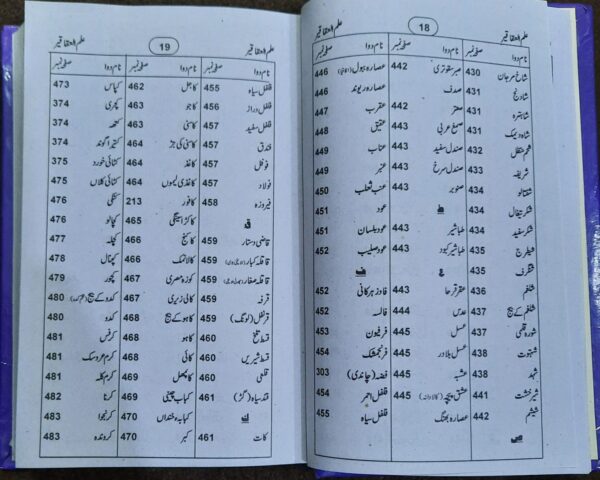 علم العقاقیر
18
صفحہ نمبر
نام دوا
صفحہ نمبر
نام دوا
صفحہ نمبر
نام دوا
شاخ مرجان 430
شادنج 431
شاہترہ 431
شاہ دیمک 431
شحم حنظل 432
شریفہ 433
شفتالو 434
شکر تیغال 434
شکر سفید 434
شیطرج 435
شنگرف 435
شلغم 436
شلغم کے بیج 437
شورہ قلمی 437
شہتوت 438
شہد 438
شیر خشت 441
شیشم 442
ص
صبر سقوطری 442
صدف
صعتر 442
صمغ عربی 443
صندل سفید 443
صندل سرخ 443
صنوبر 443
ط
طباشیر 443
طباشیر کبود 443
ع
عقر قرحا 443
عدس 444
عسل 445
عسل بلادر 445
عشبہ 445
عشق پیچہ 445
عصارہ بھنگ
عصارہ ببول 446
عصارہ ریوند 446
عقرب 447
عقیق 448
عناب 449
عنبر 449
عنب الثعلب 450
عود 451
عود بلسان 451
عود صلیب 452
ف
فاد زہر کانی 452
فالسہ 452
فرفیون 453
فرنجمشک 454
فضہ (چاندی) 303
فلفل احمر 454
فلفل سیاہ 455
علم العقاقیر
19
علم العقاقیر
نام دوا
صفحہ نمبر
نام دوا
صفحہ نمبر
نام دوا
صفحہ نمبر
فلفل سیاہ 455
فلفل دراز 456
فلفل سفید 457
فندق 457
فوفل 457
فولاد 458
فیروزہ 458
ق
قاضی دستار 459
قاقلہ کبار 459
قاقلہ صغار 459
قرفہ 459
قرنفل (لونگ) 459
قسط تلخ 460
قسط شیریں 460
قلعی 460
قند سیاہ (گڑ) 461
ک
کات 461
کاجل 462
کاجو 463
کاسنی 463
کاسنی کی جڑ 464
کاغذ 464
کاغذی لیموں 464
کافور 213
کاکڑا سینگی 465
کاکنج 466
کالانمک 466
کوزہ مصری 467
کالی زیری 467
کاہو کے بیج 468
کاہو 468
کائی 468
کائپھل 469
کباب چینی 469
کبابہ خنداں 470
کبر 470
کپاس 473
کچری 374
کتھہ 374
کتیرا گوند 374
کٹائی خورد 375
کٹائی کلاں 475
کٹکی 476
کچالو 476
کچلہ 477
کچنال 478
کچور 479
کدو کے بیج 480
کدو 480
کرفس 481
کرم عروسک 481
کرم کلہ 481
کرنا 482
کرنجوا 483
کروندہ 483